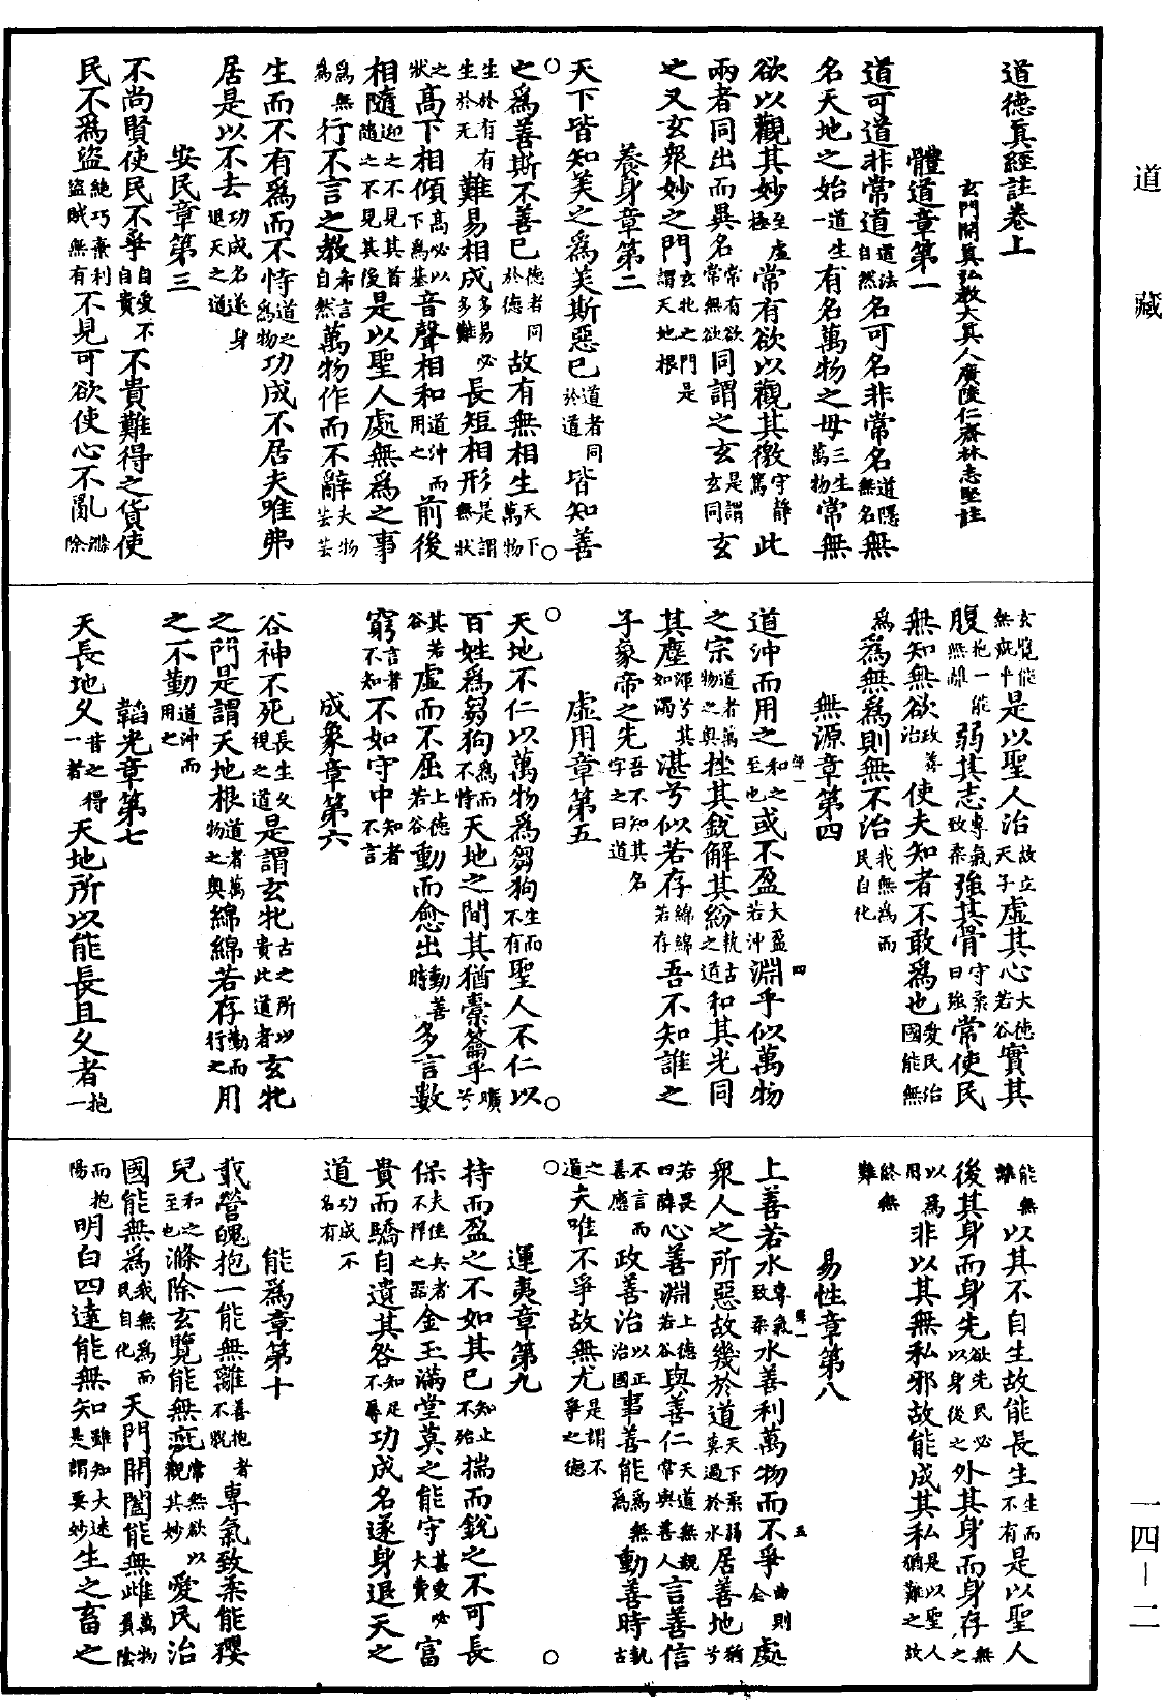 道德真經註卷上
玄門開真弘教大真人廣陵仁齋林志堅註
體道章第一
道可道非常道道法自然名可名非常名道隱無名無
名天地之始道生一有名萬物之母三生萬物常無
欲以觀其妙至虛極常有欲以觀其徼守靜篤此
兩者同出而異名常有欲常無欲同謂之玄是謂玄同玄
之又玄衆妙之門玄牝之門是謂天地根
養身章第二
天下皆知美之為美斯惡已道者同於道皆知善
之為善斯不善已德者同於德故有無相生天下萬物
生於有有生於无難易相成多易必多難長短相形是謂無狀
之狀高下相傾高必以下為基音聲相和道沖而用之前後
相隨迎之不見其首隨之不見其後是以聖人處無為之事
為無為行不言之教希言自然萬物作而不辭夫物芸芸
生而不有為而不恃道之為物功成不居夫唯弗
居是以不去功成名遂身退天之道
安民章第三
不尚賢使民不爭自愛不自貴不貴難得之貨使
民不為盜絕巧棄利盜賊無有不見可欲使心不亂滌除
玄覽能無疵乎是以聖人治故立天子虛其心大德若谷實其
腹抱一能無離弱其志專氣致柔強其骨守柔曰強常使民
無知無欲政善治使夫知者不敢為也愛民治國能無
為為無為則無不治我無為而民自化
無源章第四
道沖而用之和之至也或不盈大盈若沖淵乎似萬物
之宗道者萬物之奧挫其銳解其紛執古之道和其光同
其塵渾兮其如濁湛兮似若存綿綿若存吾不知誰之
子象帝之先吾不知其名字之曰道
虛用章第五
天地不仁以萬物為芻狗生而不有聖人不仁以
百姓為芻狗為而不恃天地之間其猶橐籥乎曠兮
其若谷虛而不屈上德若谷動而愈出動善時多言數
窮言者不知不如守中知者不言
成象章第六
谷神不死長生久視之道是謂玄牝古之所以貴此道者玄牝
之門是謂天地根道者萬物之奧綿綿若存勤而行之用
之不勤道沖而用之
韜光章第七
天長地久昔之得一者天地所以能長且久者抱一
能無離以其不自生故能長生生而不有是以聖人
後其身而身先欲先民必以身後之外其身而身存無之
以為用非以其無私邪故能成其私是以聖人猶難之故
終無難
易性章第八
上善若水專氣致柔水善利萬物而不爭曲則全處
衆人之所惡故幾於道天下柔弱莫過於水居善地猶兮
若畏四鄰心善淵上德若谷與善仁天道無親常與善人言善信
不言而善應政善治以正治國事善能為無為動善時執古
之道夫唯不爭故無尤是謂不爭之德
運夷章第九
持而盈之不如其已知止不殆揣而銳之不可長
保夫佳兵者不祥之器金玉滿堂莫之能守甚愛必大費富
貴而驕自遺其咎知足不辱功成名遂身退天之
道功成不名有
能為章第十
載營魄抱一能無離善抱者不脫專氣致柔能嬰
兒和之至也滌除玄覽能無疵常無欲以觀其妙愛民治
國能無為我無為而民自化天門開闔能無雌萬物負陰
而抱陽明白四達能無知雖知大迷是謂要妙生之畜之
道藏
一四—二